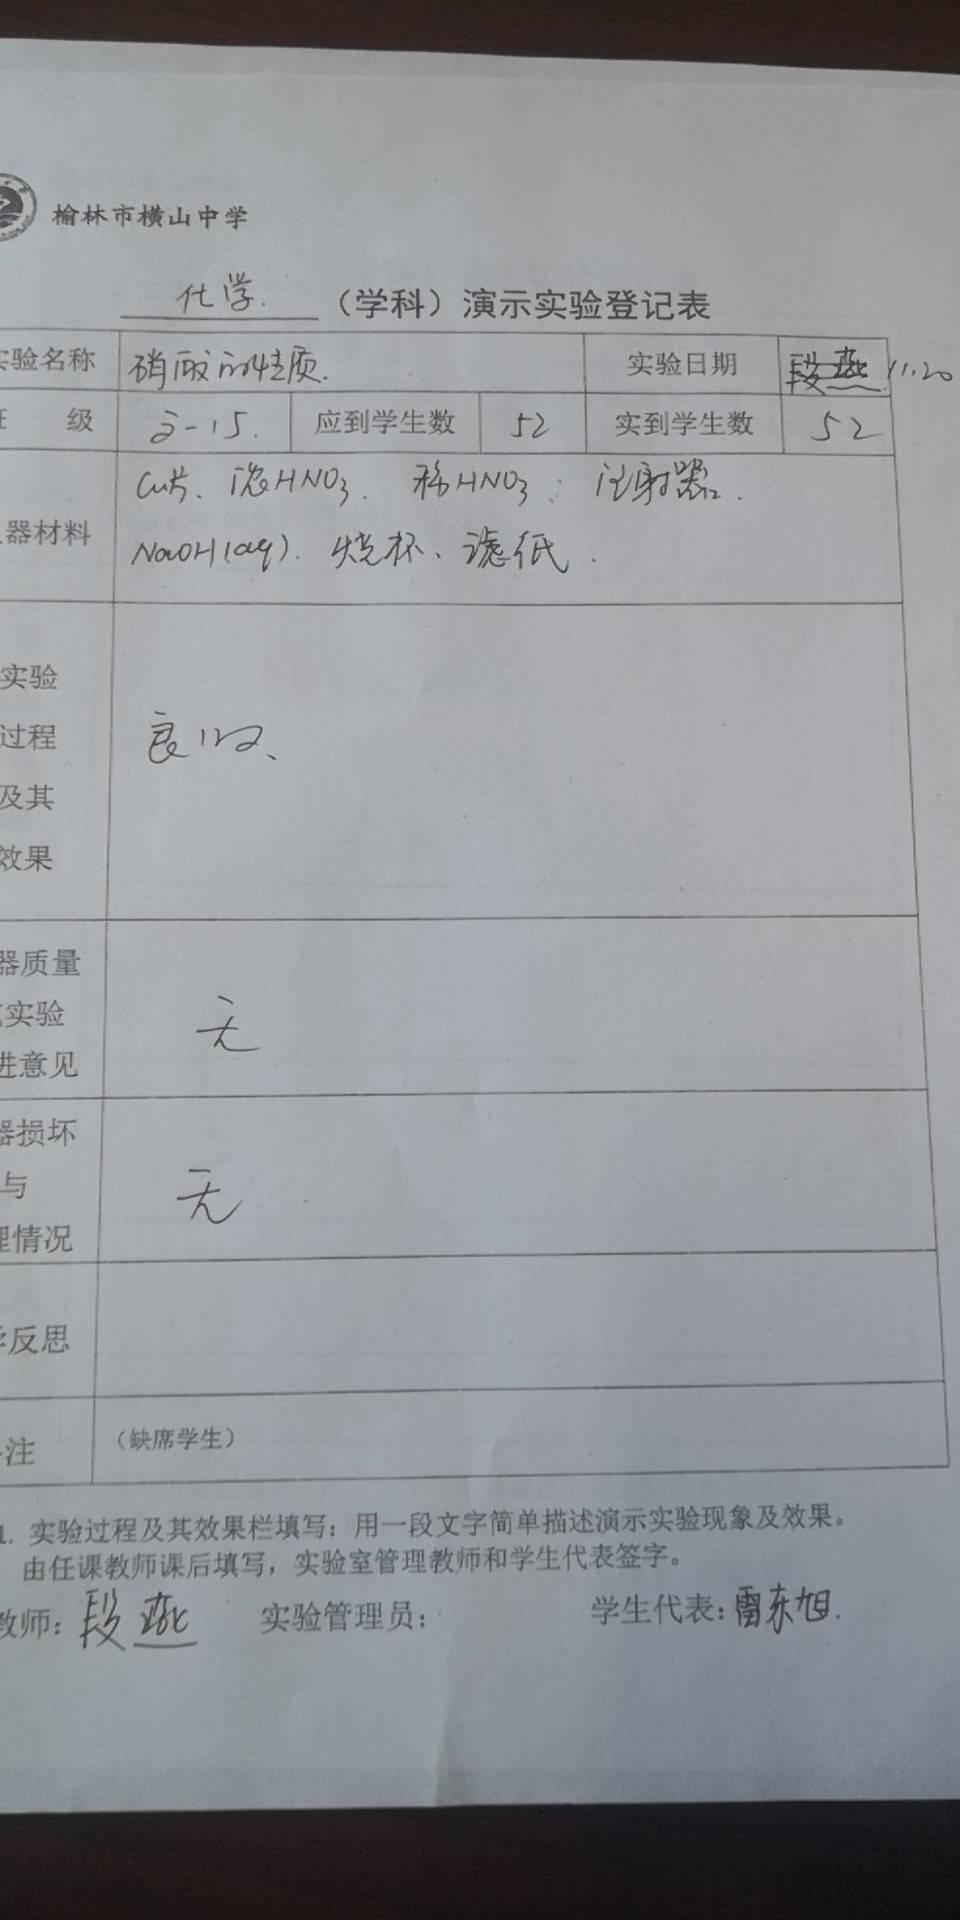 榆林市横山中学
化学. （学科）演示实验登记表
实验名称 硝酸的性质. 实验日期 11.20
级 2-15. 应到学生数 52 实到学生数 52
器材料 Cu片、浓HNO3. 稀HNO3. 注射器.
NaOH(aq). 烧杯、滤纸.
实验
过程
及其
效果
良好、
器质量
实验
进意见
无
器损坏
与
理情况
无
反思
注 （缺席学生）
1. 实验过程及其效果栏填写：用一段文字简单描述演示实验现象及效果。
由任课教师课后填写，实验室管理教师和学生代表签字。
教师：段燕 实验管理员： 学生代表：雷东旭.